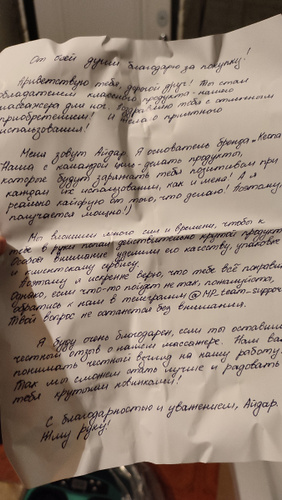 От всей души благодарю за покупку!
Приветствую тебя, дорогой друг! Ты стал
обладателем классного продукта - нашего
массажера для ног. Поздравляю тебя с отличным
приобретением! И желаю приятного
использования!
Меня зовут Айдар. Я основатель бренда
Наша с командой цель - делать продукты,
которые будут заряжать тебя позитивом при
каждом их использовании, как и меня! А я
реально кайфую от того, что делаю! Поэтому
получается мощно!)
Мы вложили много сил и времени, чтобы к
тебе в руки попал действительно крутой продукт
Особое внимание уделили его качеству, упаковке
и клиентскому сервису.
Поэтому я искренне верю, что тебе всё понравится
Однако, если что-то пойдет не так, пожалуйста,
обратись к нам в телеграмм @MP_team_support
Твой вопрос не останется без внимания.
Я буду очень благодарен, если ты оставишь
честный отзыв о нашем массажере. Нам важно
понимать честный взгляд на нашу работу.
Так мы сможем стать лучше и радовать
тебя крутыми новинками!
С благодарностью и уважением, Айдар.
Жму руку!